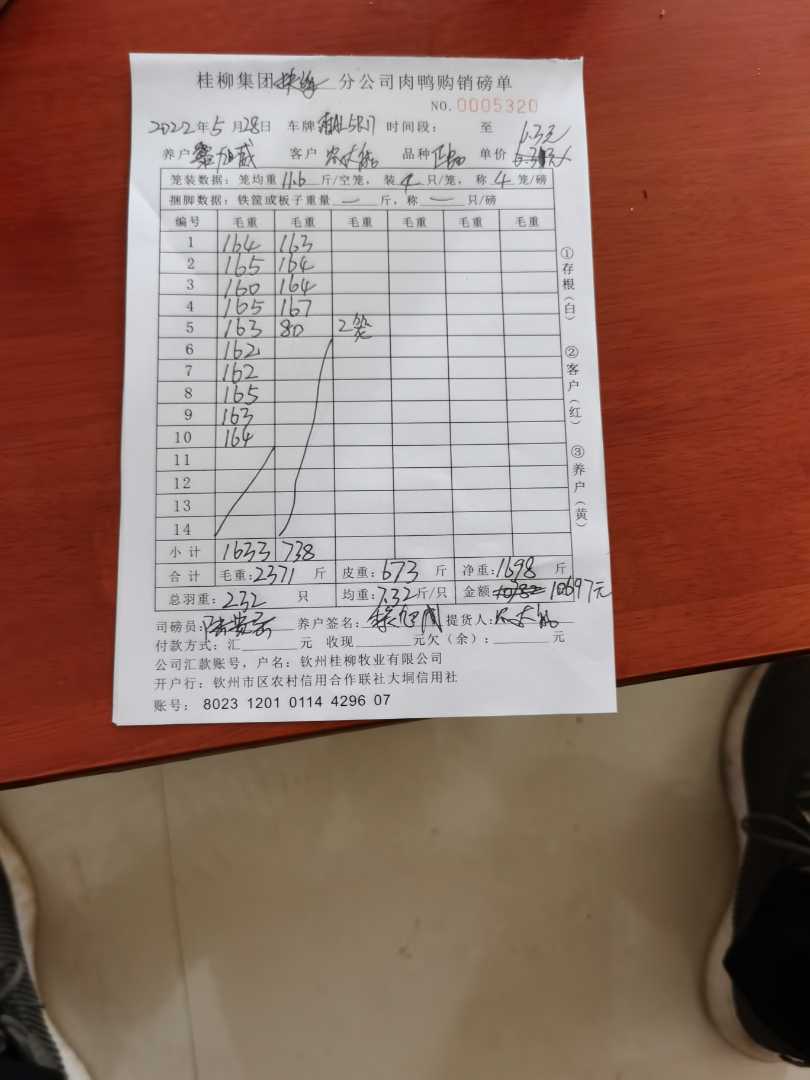 桂柳集团 分公司肉鸭购销磅单
NO.0005320
2022年5月28日 车牌 时间段： 至 6.3元
养户 客户 品种 单价
笼装数据：笼均重11.6斤/空笼，装4只/笼，称4笼/磅
捆脚数据：铁筐或板子重量—斤，称—只/磅
编号 毛重 毛重 毛重 毛重 毛重 毛重
1 164 163
2 165 164
3 160 164
4 165 167
5 163 80 2笼
6 162
7 162
8 165
9 163
10 164
11
12
13
14
小计 1633 738
合计 毛重：2371斤 皮重：673斤 净重：1698斤
总羽重：232只 均重：7.32斤/只 金额 10697元
司磅员： 养户签名： 提货人：
付款方式：汇 元 收现 元欠（余）： 元
公司汇款账号，户名：钦州桂柳牧业有限公司
开户行：钦州市区农村信用合作联社大垌信用社
账号：8023 1201 0114 4296 07
①存根（白）
②客户（红）
③养户（黄）